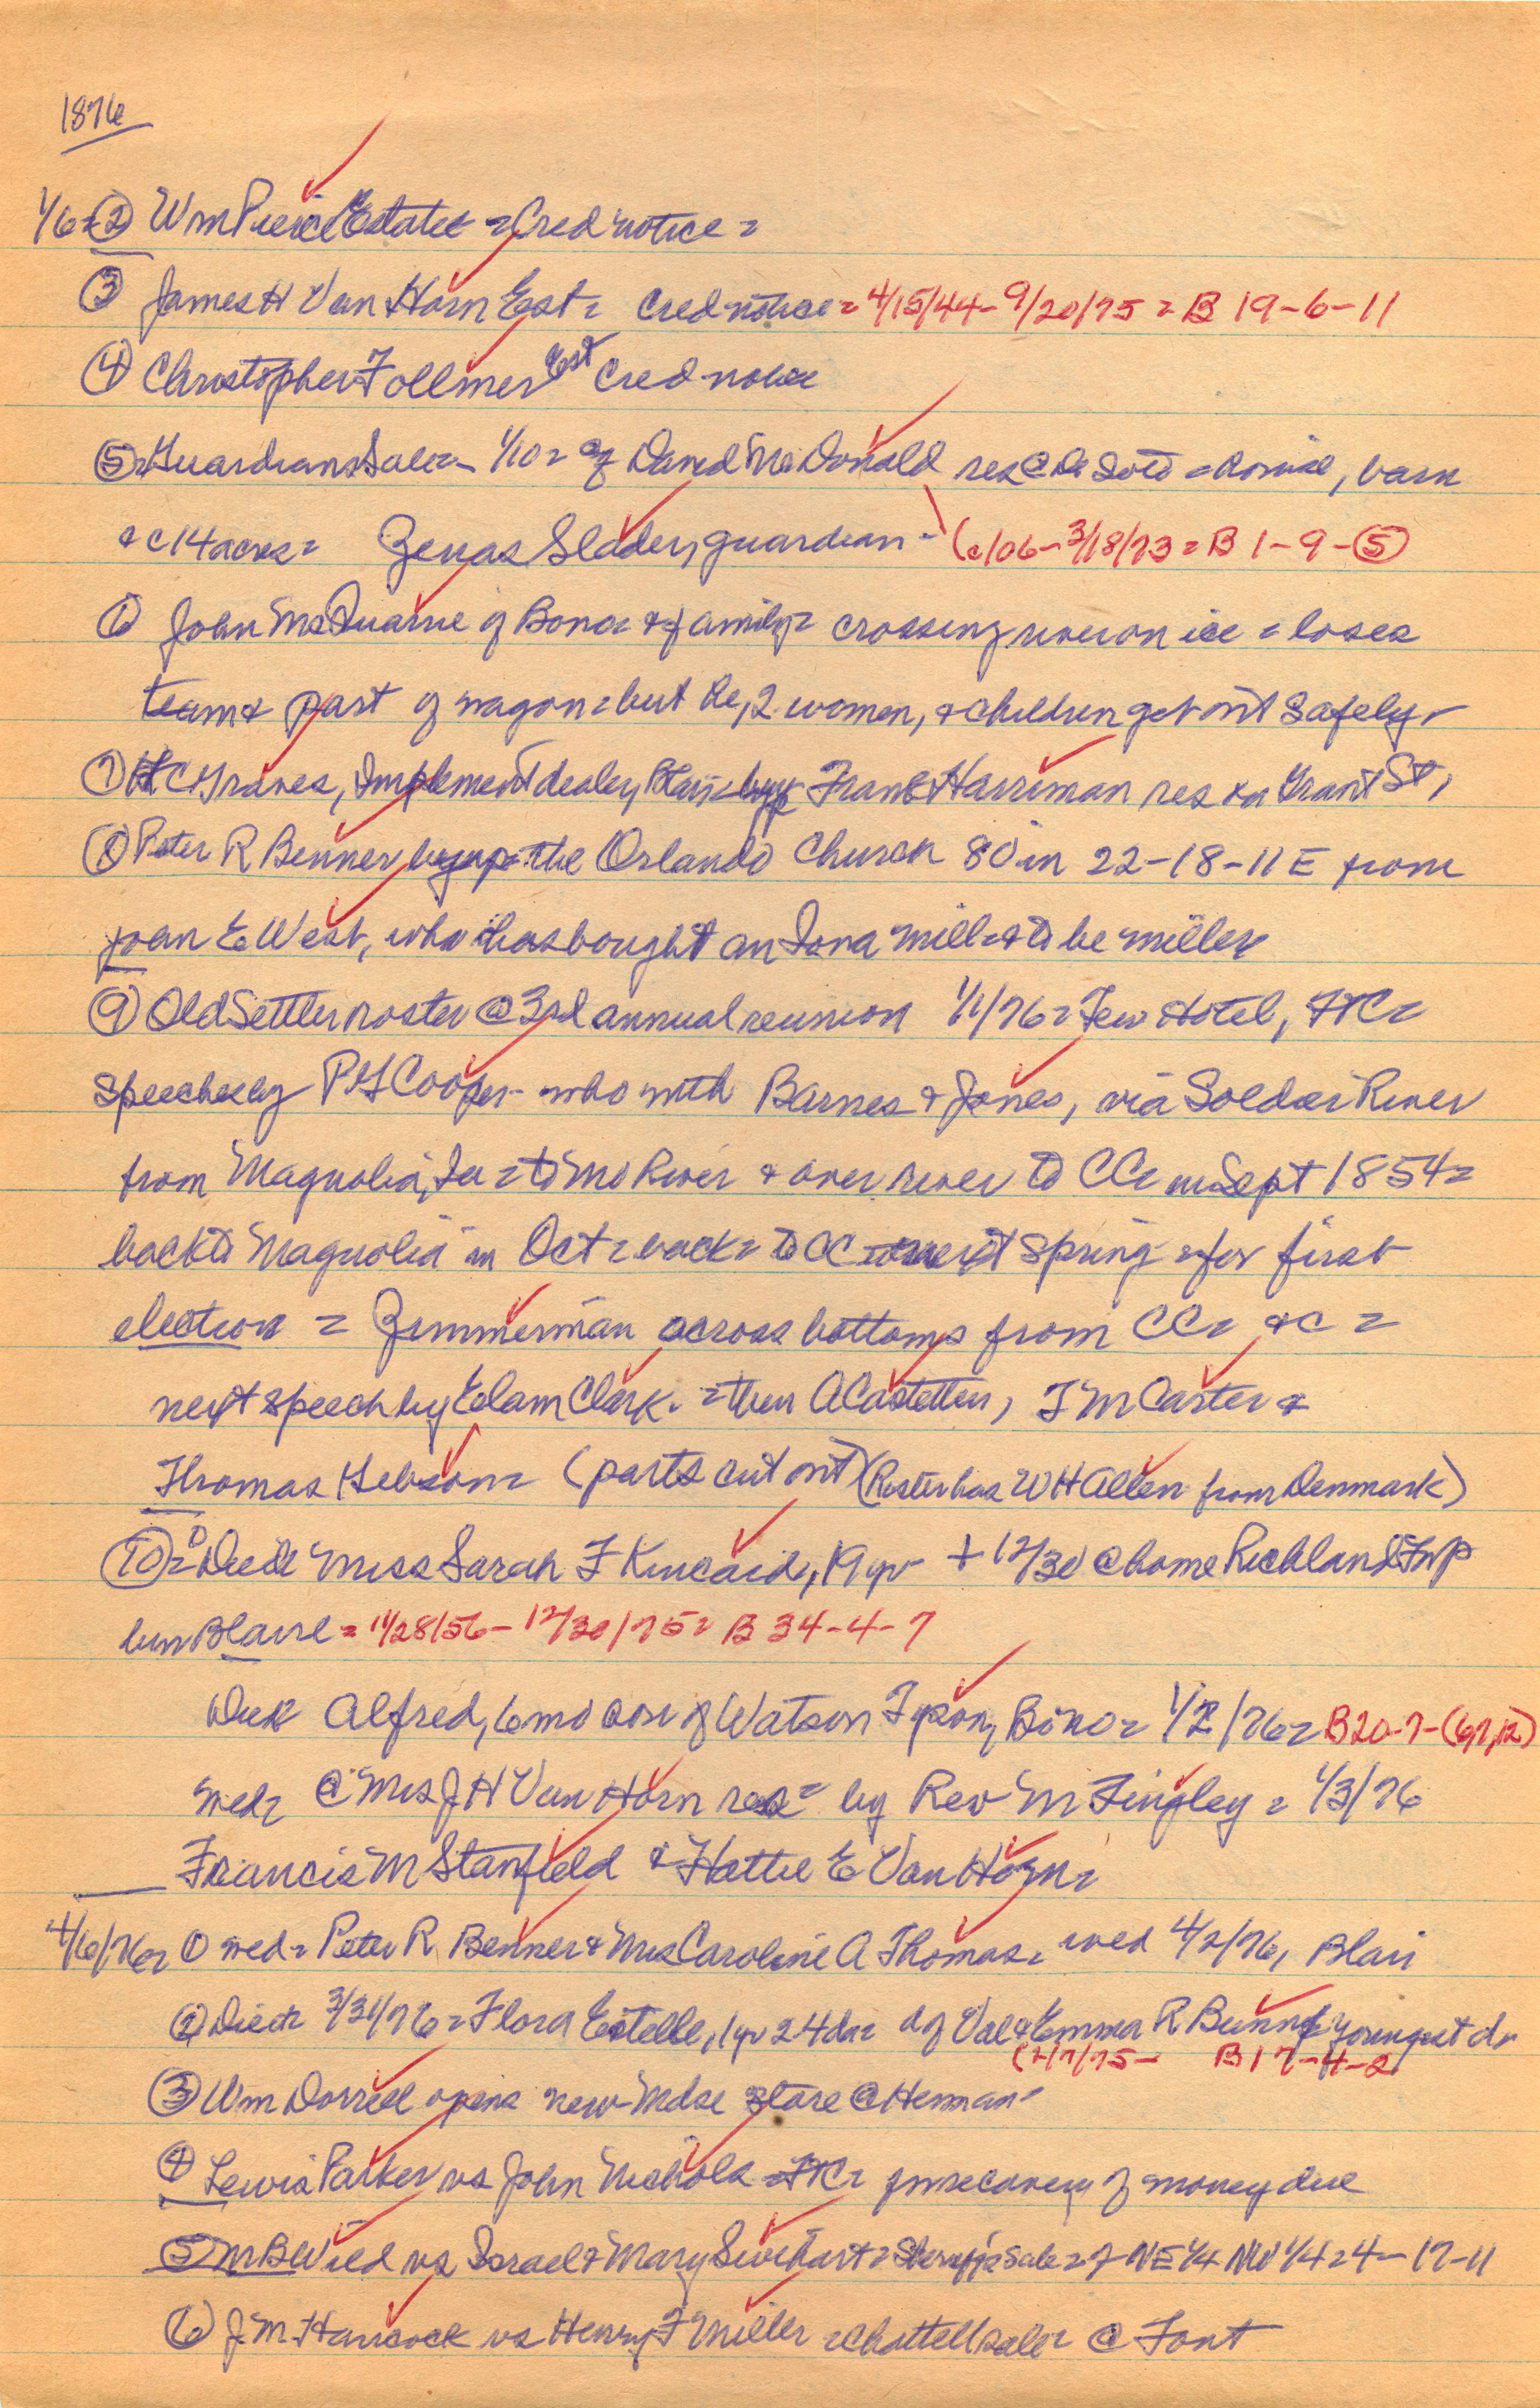 1876
1/6 = ② Wm Pierce Estate = Cred notice =
③ James H Van Horn Est = Cred notice = 4/15/44 - 9/20/75 = B 19-6-11
④ Christopher Follmer Est Cred notice
⑤ = Guardians Sale = 1/10 = of David McDonald res @ De Soto = house, barn
&c 14 acres = Zenas Sladen, guardian - (c/06 - 3/18/73 = B 1-9-⑤
⑥ John McQuarrie of Bono = & family = crossing river on ice = loses
team & part of wagon = but he, 2 women, & children get out safely
⑦ H C Graves, Implement dealer, Blair, Frank Harriman res on Grant St,
⑧ Peter R Benner buys the Orlando Church 80 in 22-18-11 E from
John E West, who has bought an Iowa mill = & to be miller
⑨ Old Settler roster @ 3rd annual reunion 1/1/76 = Few Hotel, FTC =
Speeches by P G Cooper - who with Barnes & Jones, via Soldier River
from Magnolia, Ia = to Mo River & over river to CC = in Sept 1854 =
back to Magnolia in Oct = back = to CC next Spring = for first
election = Zimmerman across bottoms from CC = &c =
next speech by Elam Clark. = then A Castetter, T M Carter &
Thomas Gibson = (parts cut out) (Roster has W H Allen from Denmark)
⑩ = Died Miss Sarah F Kincaid, 19 yr + 12/30 @ home Richland Twp
bur Blair = 11/28/56 - 12/30/75 = B 34-4-7
Died Alfred, 6 mo son of Watson Tyson, Bono = 1/2/76 = B 20-7-(6,7,12)
wed = @ Mrs J H Van Horn res = by Rev M Tingley = 1/3/76
Francis M Stanfield & Hattie E Van Horn =
4/6/76 = ① wed = Peter R Benner & Mrs Caroline A Thomas = wed 4/2/76, Blair
② Died = 3/31/76 = Flora Estelle, 1 yr 24 da = d of Val & Emma R youngest da
(3/7/75 - B 17-4-2
③ Wm Dorrell opens new Mdse store @ Herman
④ Lewis Parker vs John Nichols = FTC = for recovery of money due
⑤ M B Wild vs Israel & Mary Swihart = Sheriffs Sale = of NE 1/4 NW 1/4 = 4-17-11
⑥ J. M. Hancock vs Henry F Miller = chattell sale = @ Font